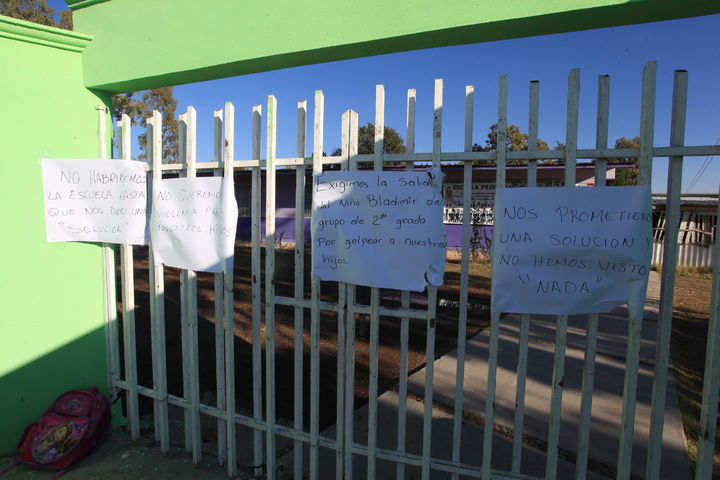 NO HABRIREMOS
LA ESCUELA HASTA
QUE NOS DEN UNA
"SOLUCION"
NO QUEREMOS
VIOLENCIA PARA
NUESTROS HIJOS
Exigimos La Salida
del Niño Bladimir de
grupo de 2do grado
Por golpear a nuestros
hijos.
NOS PROMETIERO
UNA SOLUCION Y
NO HEMOS VISTO
"NADA"
ESCUELA PRIM